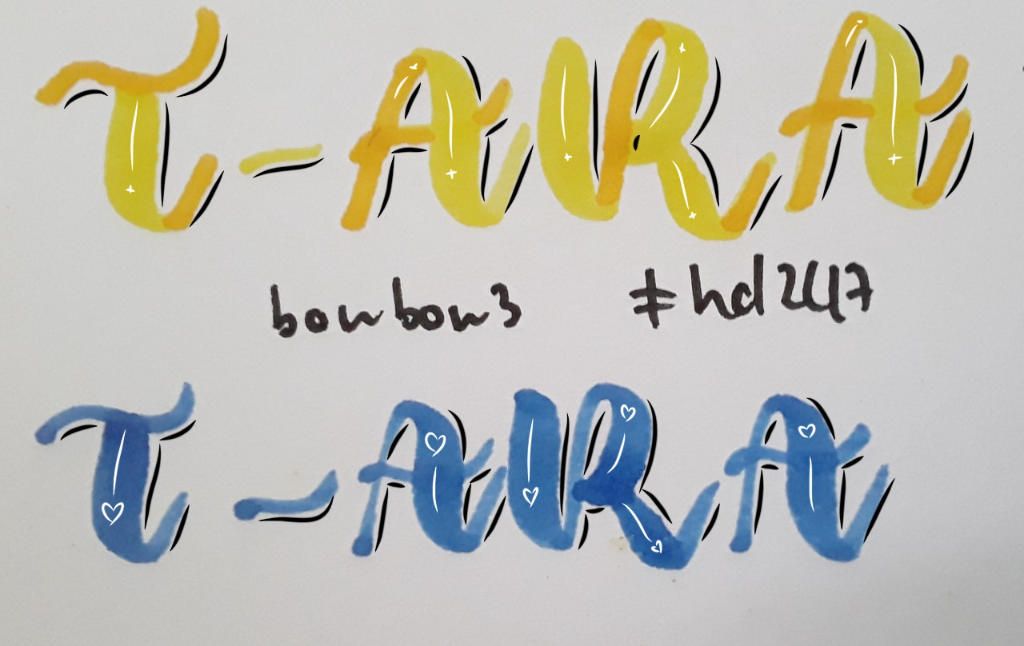 T-ARA
bowbow3 #hd247
T-ARA